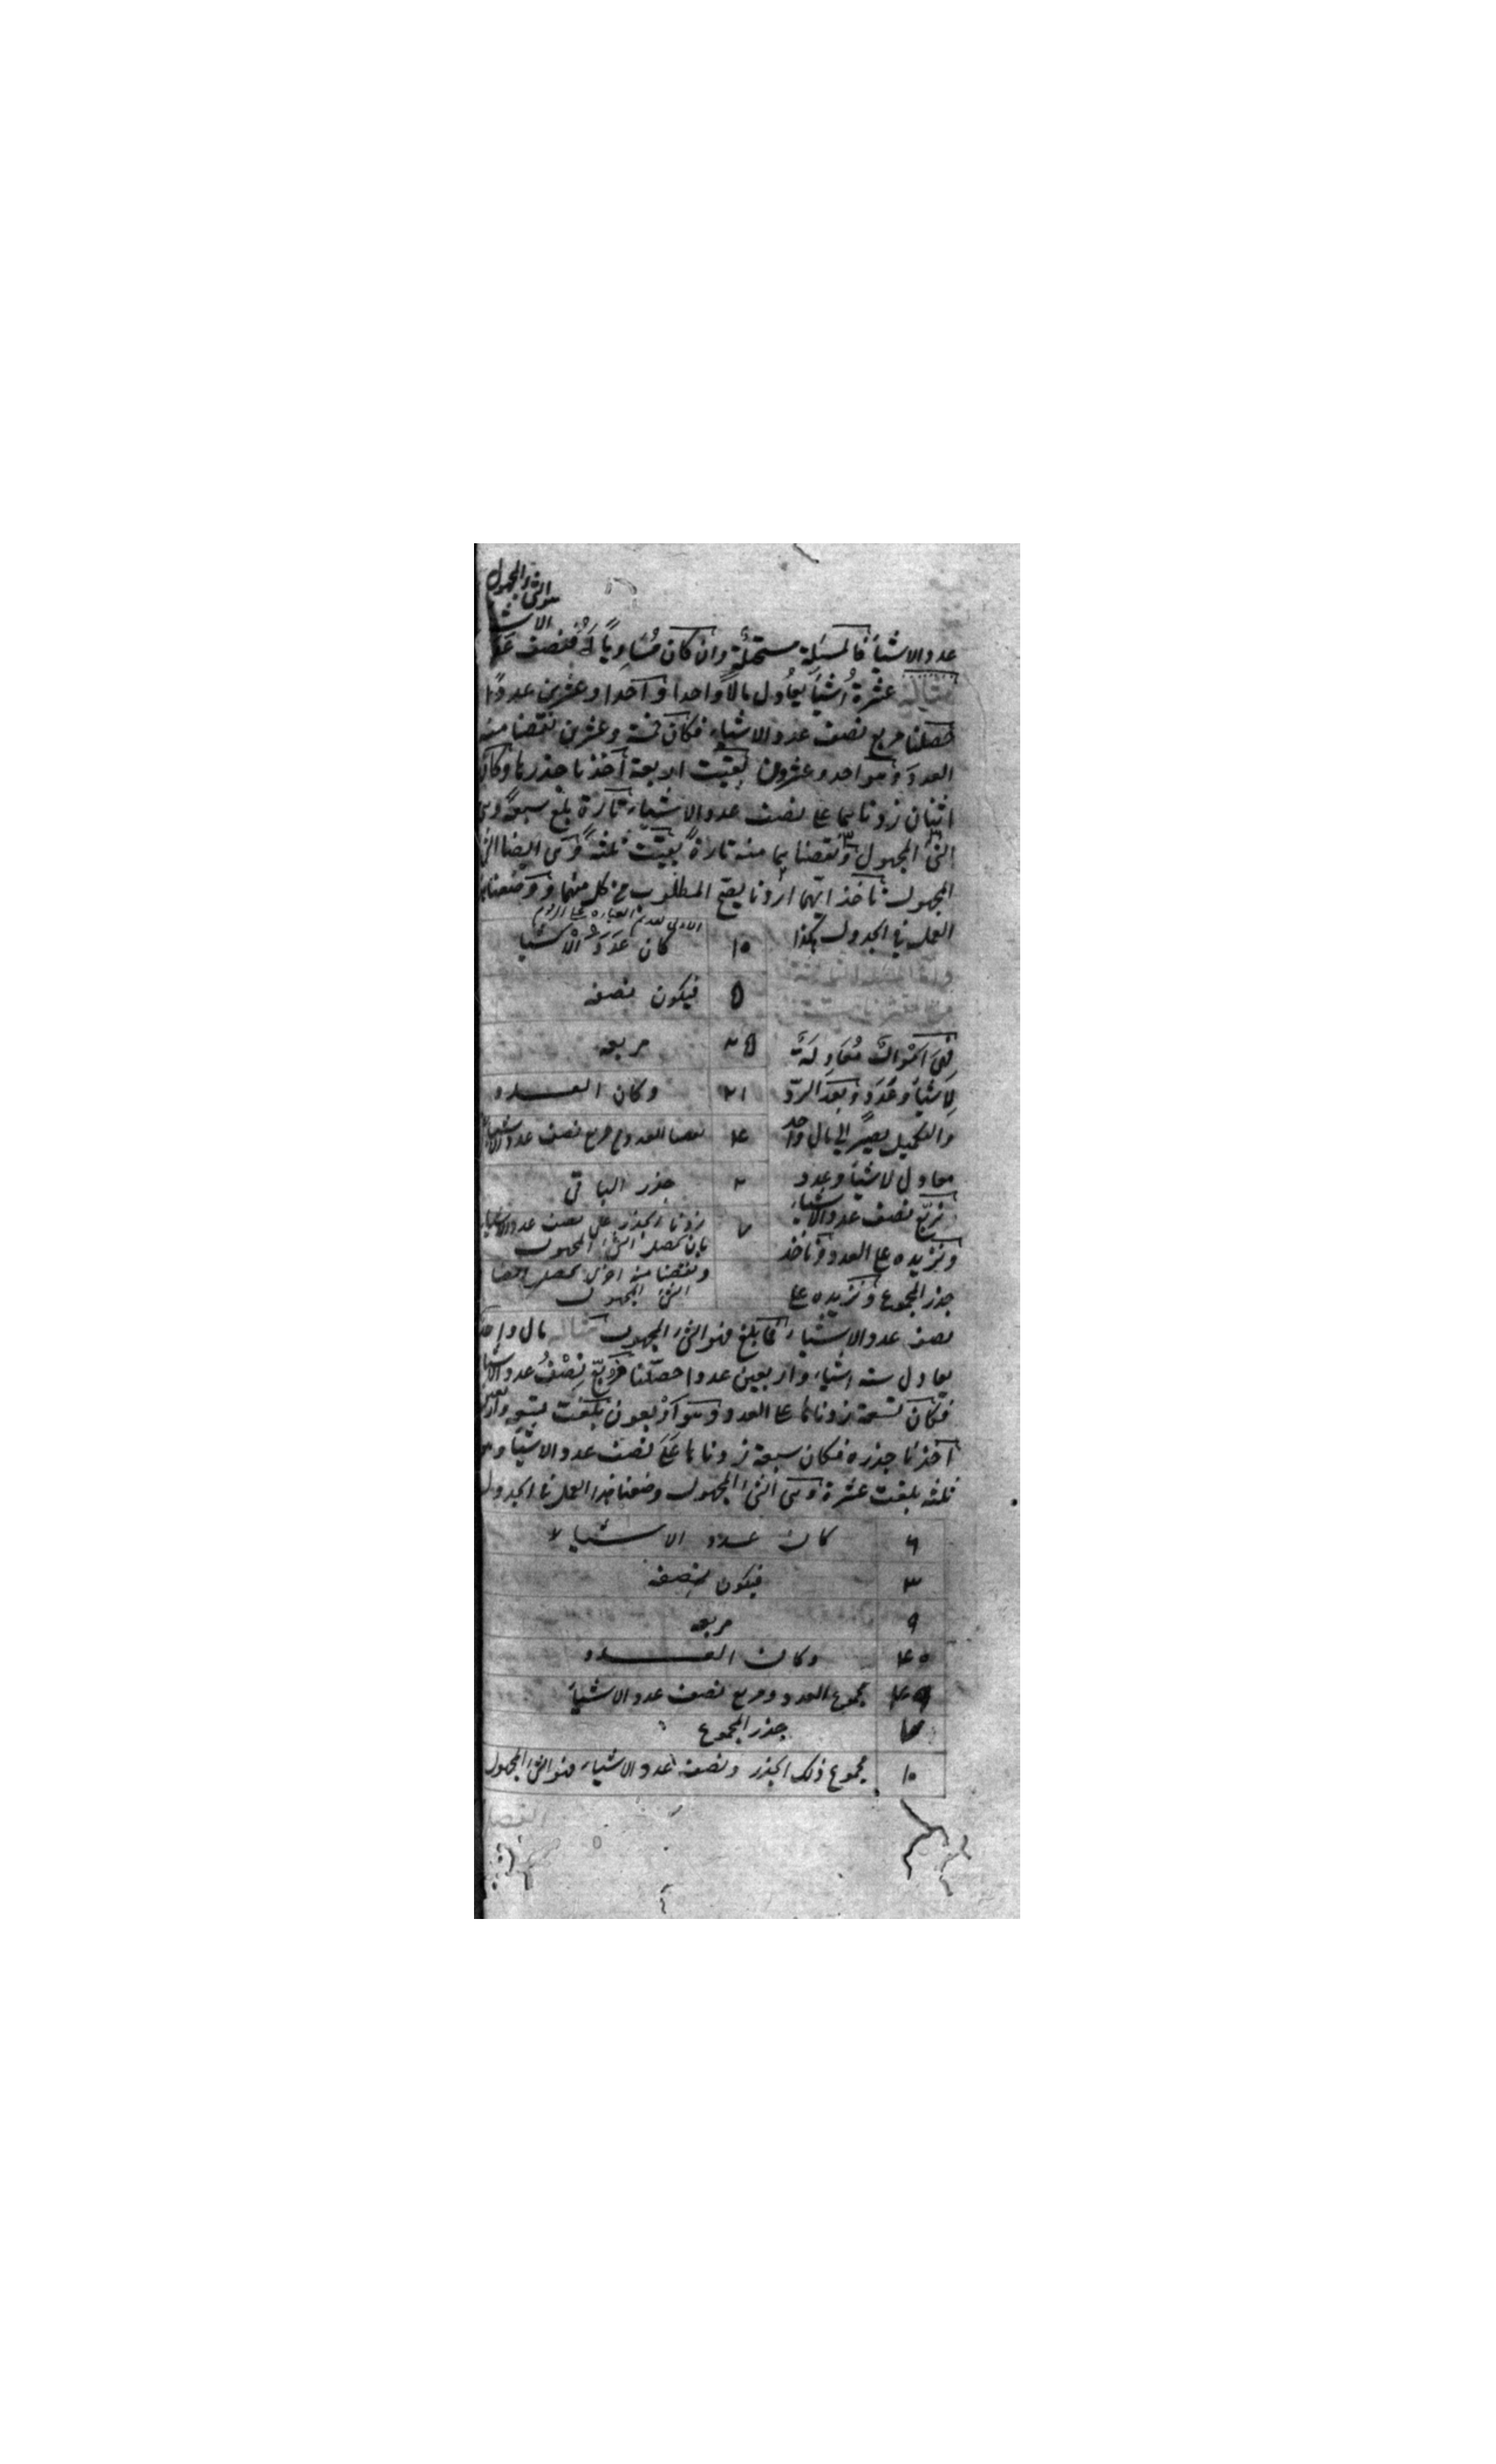 هو الشئ المجهول
الاشيا
عدد الاشيآ فالمسئلة مستحيلة وان كان مساويًا له فنصف عدد
مثاله عشرة اشيآ يعادل مالاً واحدا و احدا وعشرين عددًا
حصلنا مربع نصف عدد الاشياء فكان خمسة وعشرين نقصنا منه
العدد وهو احد وعشرون بقيت اربعة اخذنا جذرها وكان
اثنان زدناهما على نصف عدد الاشياء تارة بلغ سبعة وهى
الشئ المجهول ونقصناهما منه تارة بقيت ثلثة وهى ايضا الشئ
المجهول فناخذ ايهما اردنا يصح المطلوب من كل منهما ووضعنا
العمل فى الجدول هكذا
١٠ كان عدد الاشيا
٥ فيكون نصفه
٢٥ مربعه
٢١ وكان العدد
٤ نقصنا العدد من مربع نصف عدد الاشياء
٢ جذر الباقى
٧ زدنا الجذر على نصف عدد الاشياء
بان يحصل الشئ المجهول
ونقصنا منه اخرى يحصل ايضا
الشئ المجهول
ففى اموال معادلة
لاشيآ وعدد وبعد الرد
والتكميل يصير الى مال واحد
معادل لاشيآ وعدد
نربع نصف عدد الاشياء
ونزيده على العدد وناخذ
جذر المجموع ونزيده على
نصف عدد الاشياء فما بلغ فهو الشئ المجهول مثاله مال واحد
يعادل ستة اشياء واربعين عددا حصلنا مربع نصف عدد الاشيا
فكان تسعة زدناها على العدد وهو اربعون بلغت تسعة واربعين
اخذنا جذره فكان سبعة زدناها على نصف عدد الاشيآ وهو
ثلثه بلغت عشرة وهى الشئ المجهول وضعنا هذا العمل فى الجدول
٦ كان عدد الاشياء
٣ فيكون نصفه
٩ مربعه
٤٠ وكان العدد
٤٩ مجموع العدد ومربع نصف عدد الاشيآ
٧ جذر المجموع
١٠ مجموع ذلك الجذر ونصف عدد الاشياء فهو الشئ المجهول